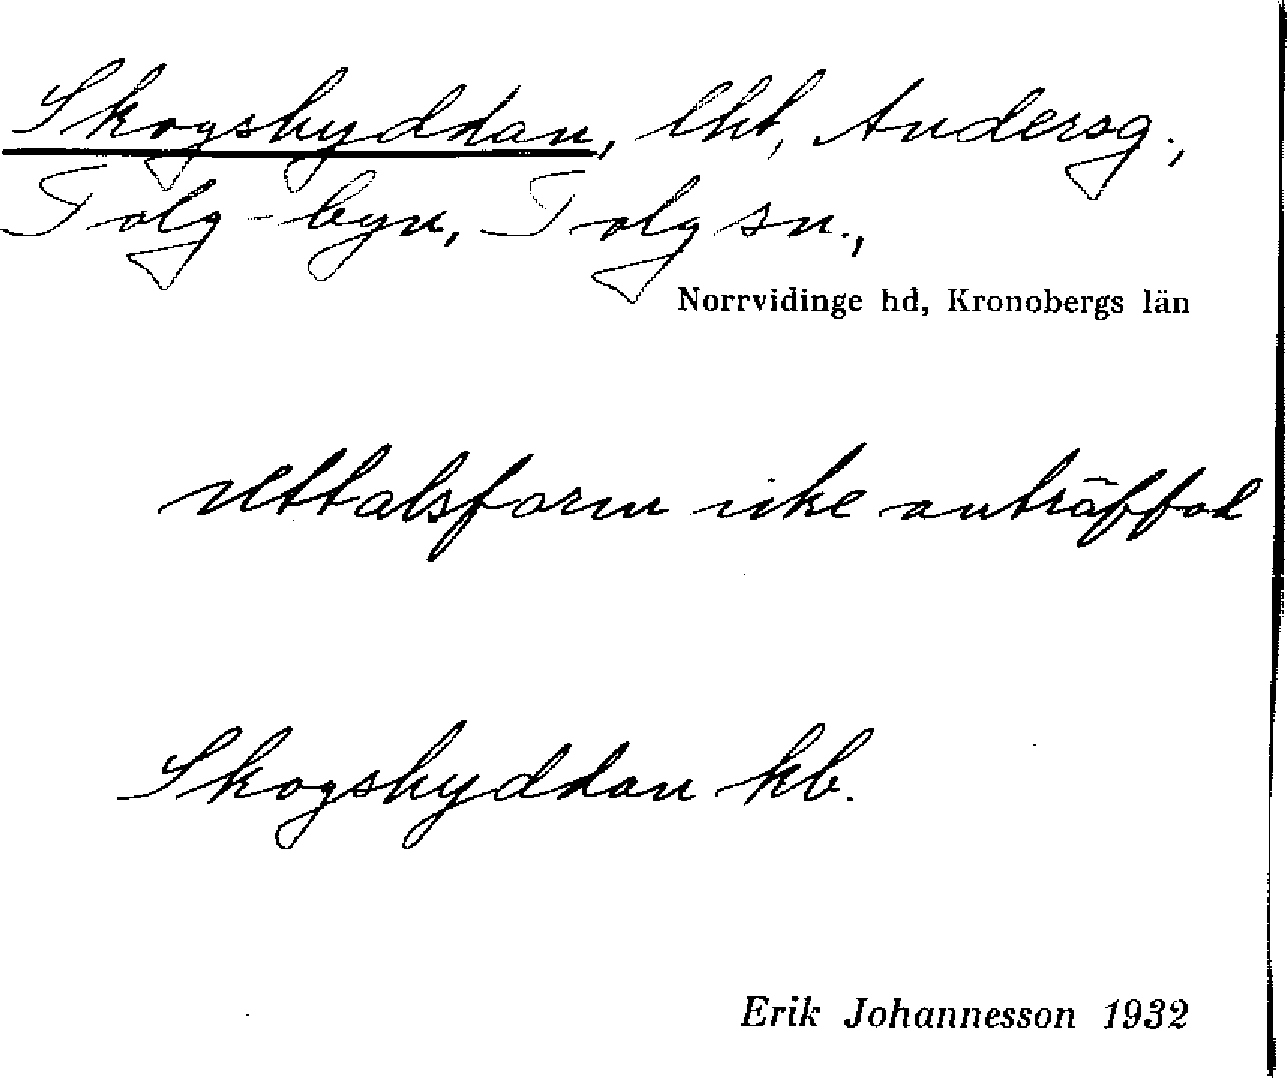 Skogshyddan, lht, Andersg.,
Tolg-byn, Tolg sn.,
Norrvidinge hd, Kronobergs län
uttalsform icke anträffad
Skogshyddan kb.
Erik Johannesson 1932